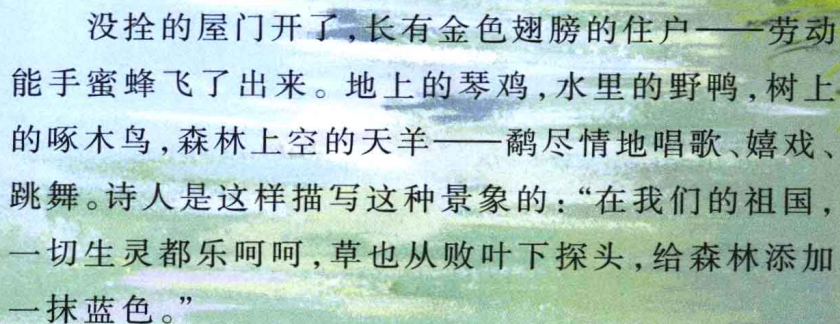 没拴的屋门开了,长有金色翅膀的住户——劳动
能手蜜蜂飞了出来。地上的琴鸡,水里的野鸭,树上
的啄木鸟,森林上空的天羊——鹬尽情地唱歌、嬉戏、
跳舞。诗人是这样描写这种景象的:“在我们的祖国,
一切生灵都乐呵呵,草也从败叶下探头,给森林添加
一抹蓝色。”